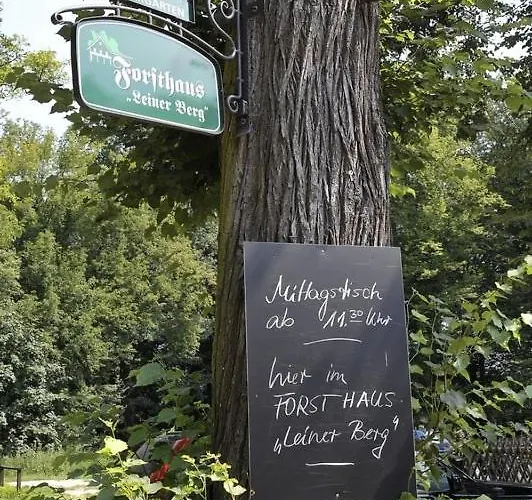 Forsthaus
„Leiner Berg"
Mittagstisch
ab 11.30 Uhr
hier im
FORSTHAUS
„Leiner Berg"